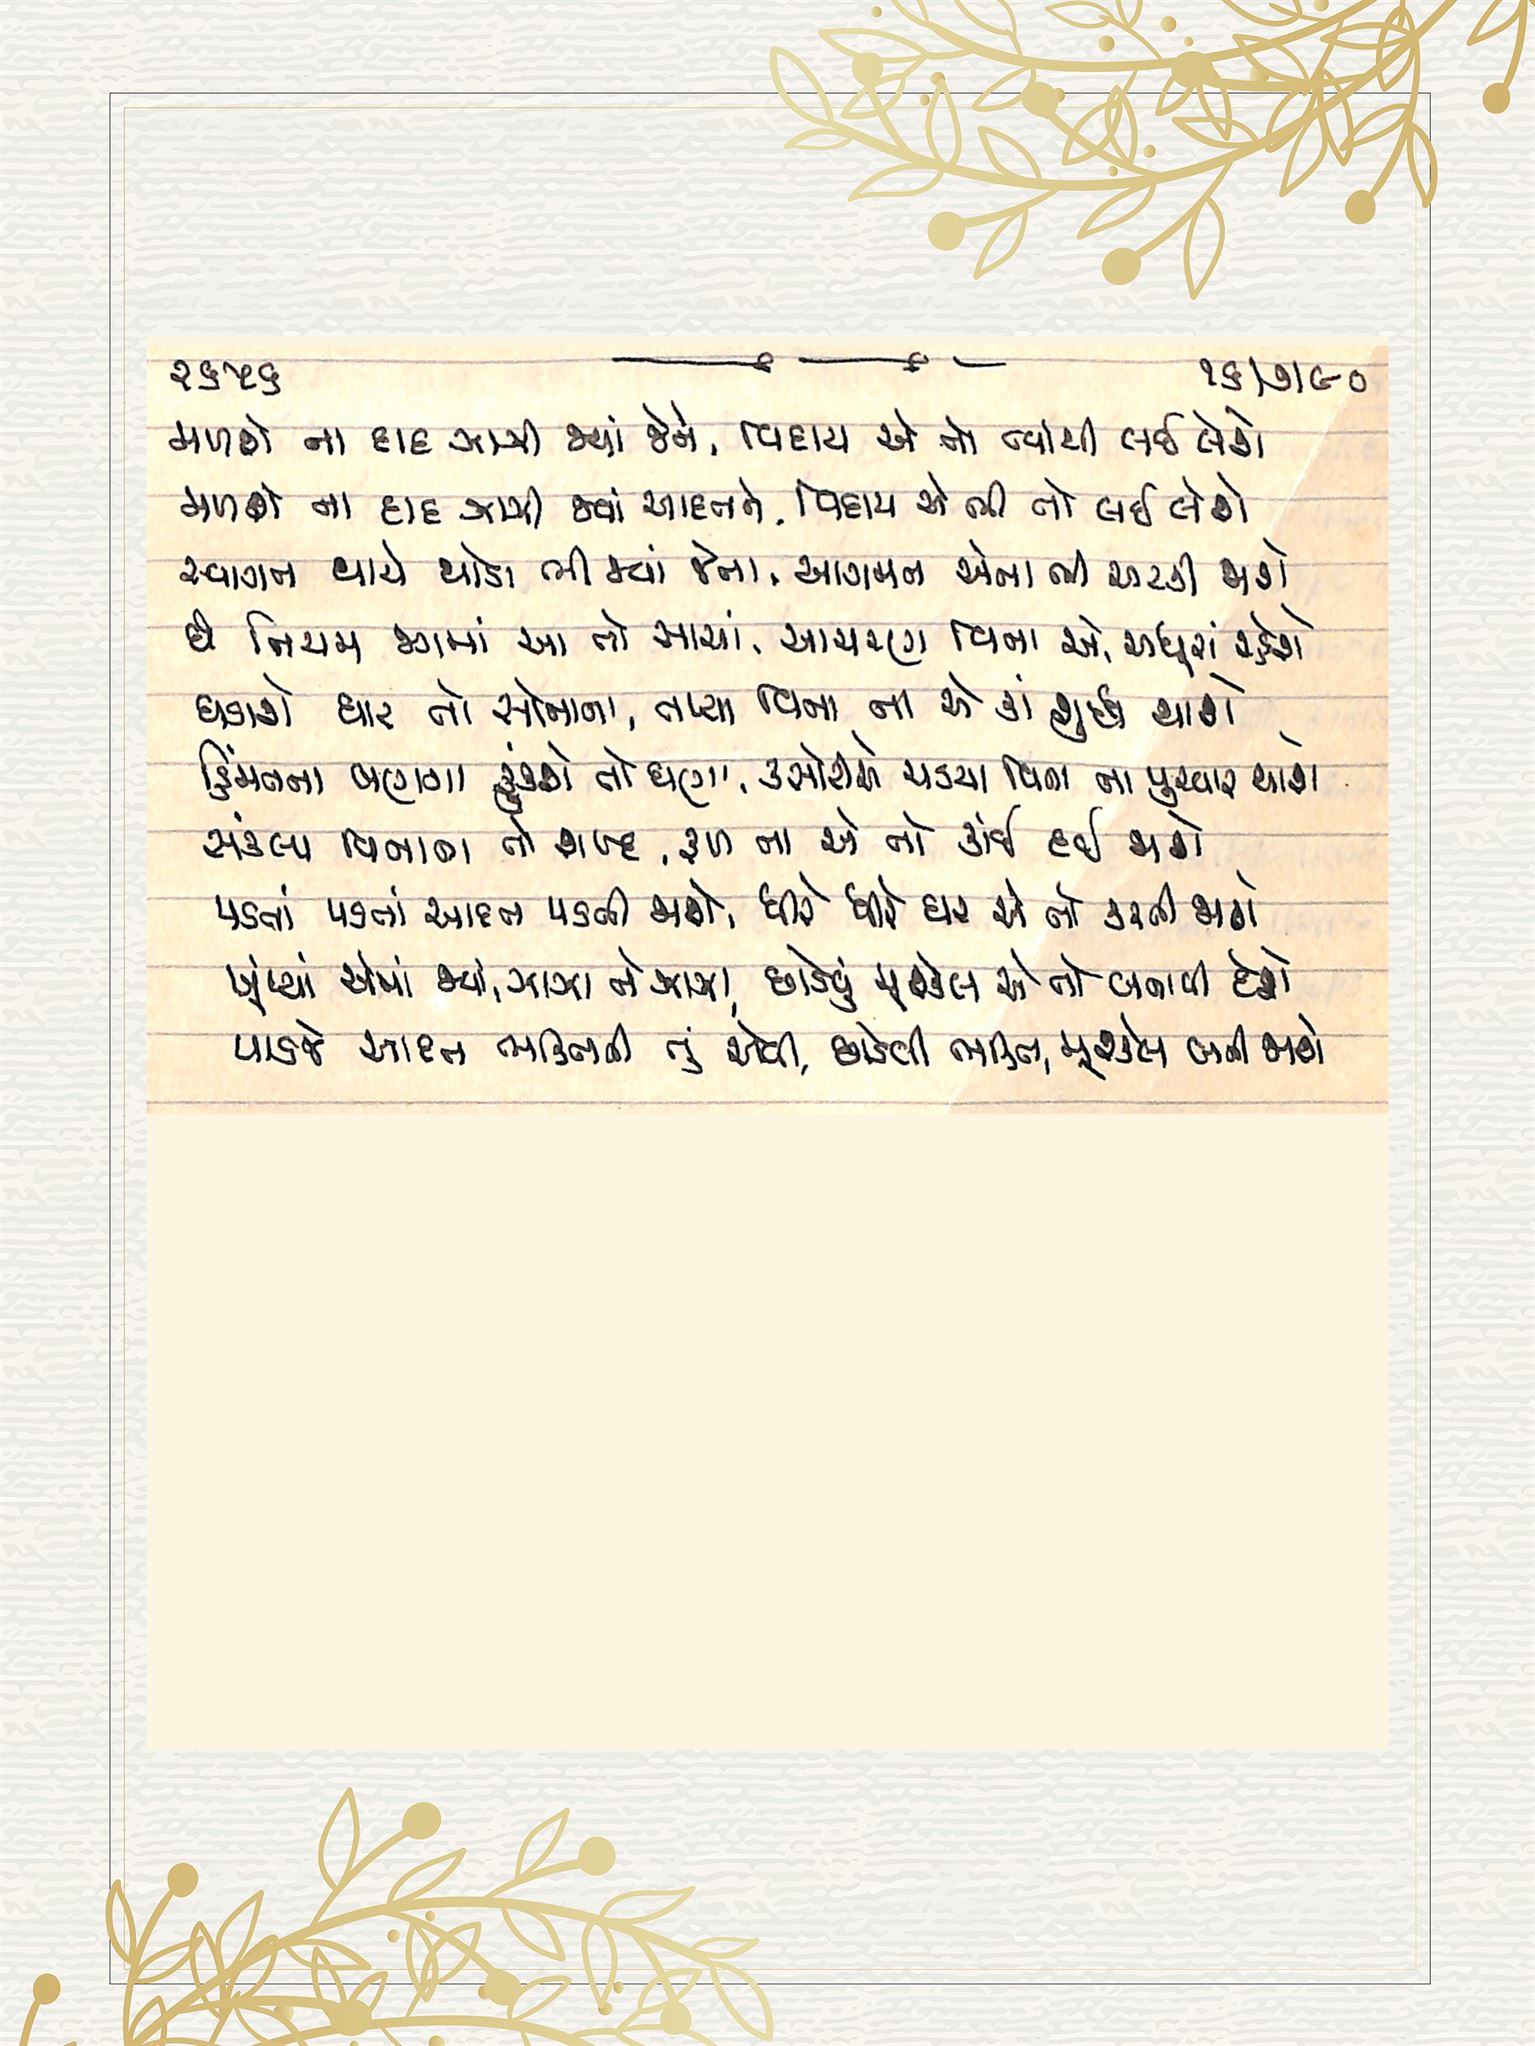 ૨૬૫૬ ૧૬/૭/૯૦
મળશે ના દાદ ઝાઝી જ્યાં જેને, વિદાય એ તો ત્યાંથી લઈ લેશે
મળશે ના દાદ ઝાઝી જ્યાં આદતને, વિદાય એ ભી તો લઈ લેશે
સ્વાગત થાયે થોડા ભી જ્યાં જેના, આગમન એના ભી અટકી જાશે
છે નિયમ જગમાં આ તો સાચાં, આચરણ વિના એ, અધૂરાં રહેશે
ઘડાશે ઘાટ તો સોનાના, તપ્યા વિના ના એ કાં શુદ્ધ થાશે
હિંમતના બણગા ફૂંકશે તો ઘણા, કસોટીએ ચડયા વિના ના પુરવાર થાશે
સંકલ્પ વિનાના તો શબ્દ, ફળ ના એ તો કાંઈ દઈ જાશે
પડતાં પડતાં આદત પડતી જાશે, ધીરે ધીરે ઘર એ તો કરતી જાશે
ખૂંપ્યાં એમાં જ્યાં, ઝાઝા ને ઝાઝા, છોડવું મૂશ્કેલ એ તો બનાવી દેશે
પાડજે આદત ભક્તિની તું એવી, છોડવી ભક્તિ, મૂશ્કેલ બની જાશે